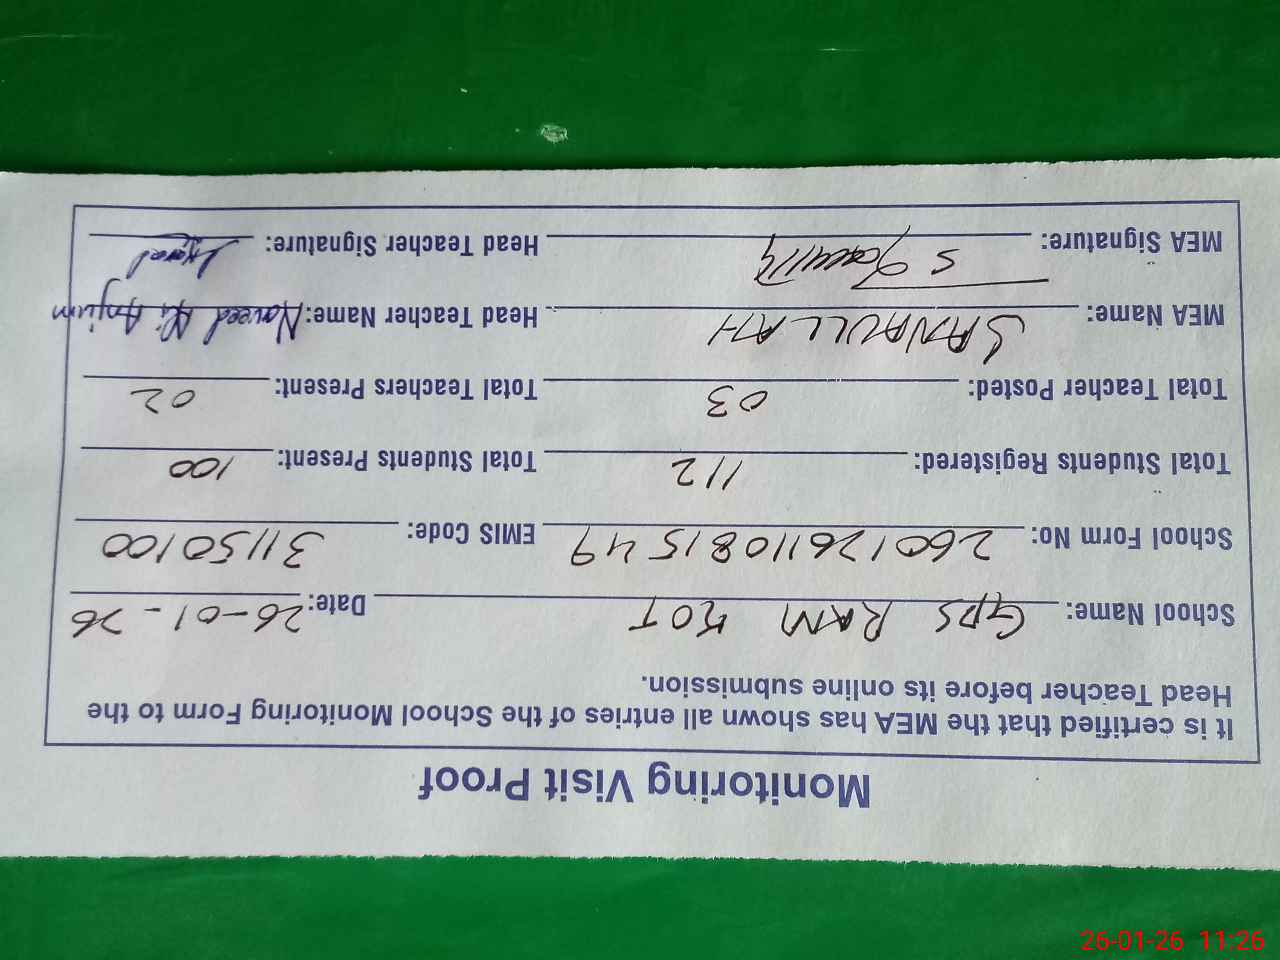 Monitoring Visit Proof
It is certified that the MEA has shown all entries of the School Monitoring Form to the
Head Teacher before its online submission.
School Name: GPS RAM KOT Date: 26-01-26
School Form No: 26012611081549 EMIS Code: 31150100
Total Students Registered: 112 Total Students Present: 100
Total Teacher Posted: 03 Total Teachers Present: 02
MEA Name: SANAULLAH Head Teacher Name: Naveed Ali Anjum
MEA Signature: Head Teacher Signature:
26-01-26 11:26